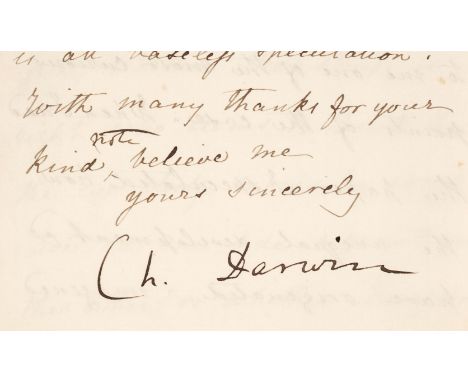 is all baseless speculation.
With many thanks for your
kind note believe me
yours sincerely
Ch. Darwin